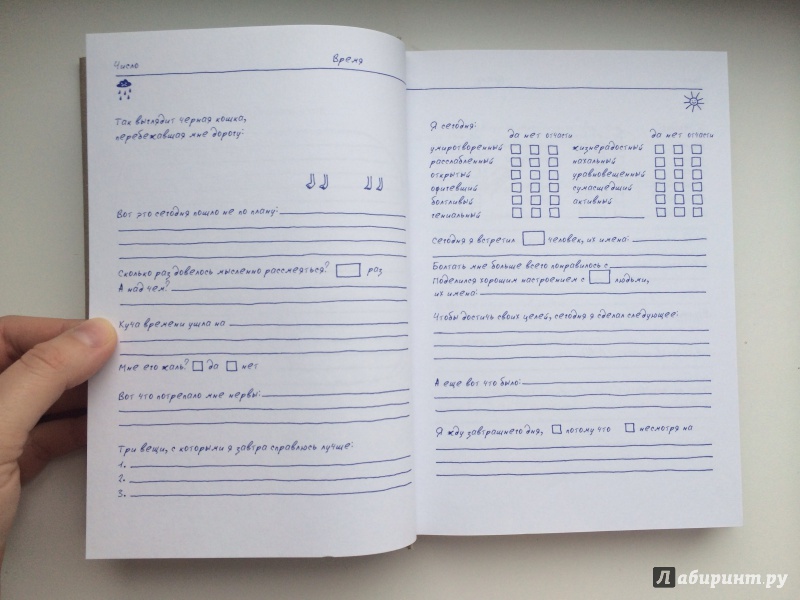 Число Время
Так выглядит черная кошка,
перебежавшая мне дорогу:
Вот это сегодня пошло не по плану:
Сколько раз довелось мысленно рассмеяться? раз
А над чем?
Куча времени ушла на
Мне его жаль? да нет
Вот что потрепало мне нервы:
Три вещи, с которыми я завтра справлюсь лучше:
1.
2.
3.
Я сегодня:
да нет отчасти
умиротворенный
расслабленный
открытый
офигевший
болтливый
гениальный
да нет отчасти
жизнерадостный
нахальный
уравновешенный
сумасшедший
активный
Сегодня я встретил человек, их имена:
Болтать мне больше всего понравилось с
Поделился хорошим настроением с людьми,
их имена:
Чтобы достичь своих целей, сегодня я сделал следующее:
А еще вот что было:
Я жду завтрашнего дня, потому что несмотря на
Лабиринт.ру